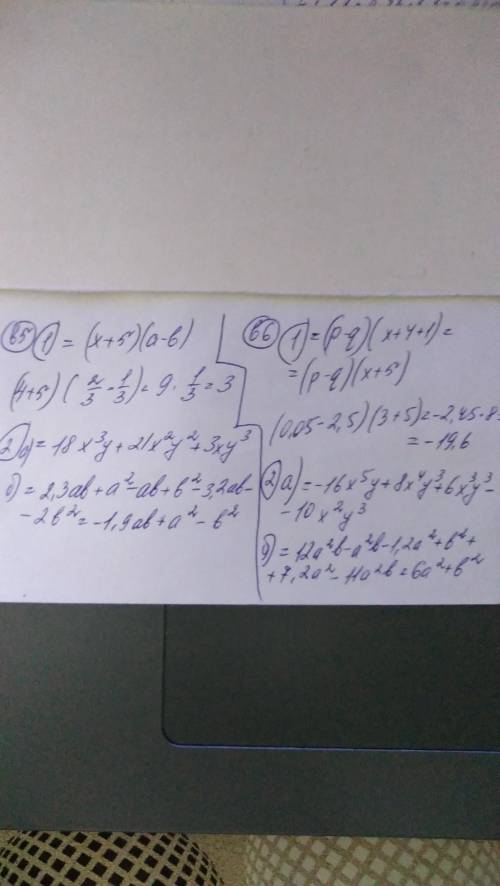 В5 1) = (x+5)(a-b)
(4+5)(2/3 - 1/3) = 9 · 1/3 = 3
2) а) = 18x³y + 21x²y² + 3xy³
б) = 2,3ab + a² - ab + b² - 3,2ab -
- 2b² = -1,9ab + a² - b²
В6 1) = (p-q)(x+4+1) =
= (p-q)(x+5)
(0,05 - 2,5)(3+5) = -2,45 · 8 =
= -19,6
2) а) = -16x⁵y + 8x⁴y³ + 6x³y³ -
- 10x²y³
б) = 12a²b - a²b - 1,2a² + b² +
+ 7,2a² - 11a²b = 6a² + b²